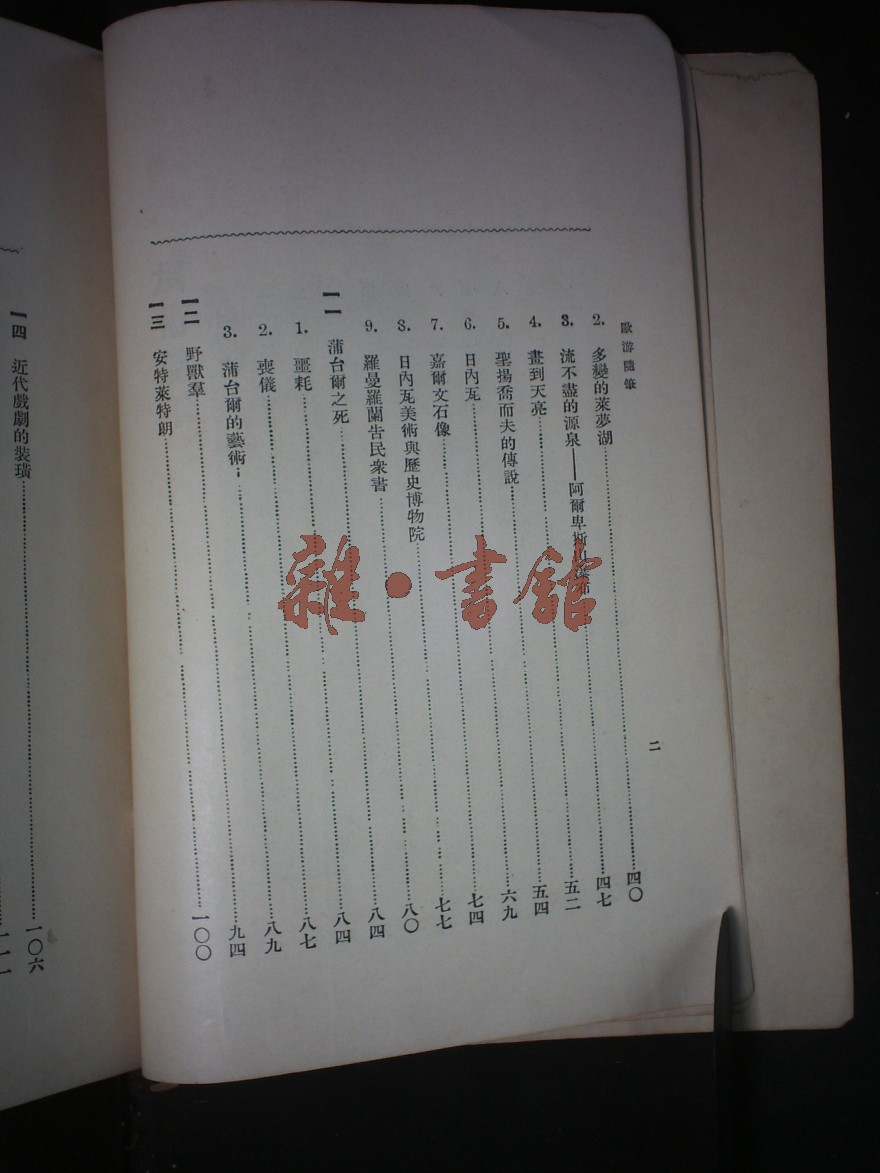 歐游隨筆
二
2. 多變的萊夢湖……四〇
3. 流不盡的源泉——阿爾卑斯……四七
4. 畫到天亮……五二
5. 聖揚喬而夫的傳說……五四
6. 日內瓦……六九
7. 嘉爾文石像……七四
8. 日內瓦美術與歷史博物院……七七
9. 羅曼羅蘭告民衆書……八〇
一一 蒲台爾之死……八四
1. 噩耗……八四
2. 喪儀……八七
3. 蒲台爾的藝術……八九
一二 野獸羣……九四
一三 安特萊特朗……一〇〇
一四 近代戲劇的裝璜……一〇六
一一一
雜·書館